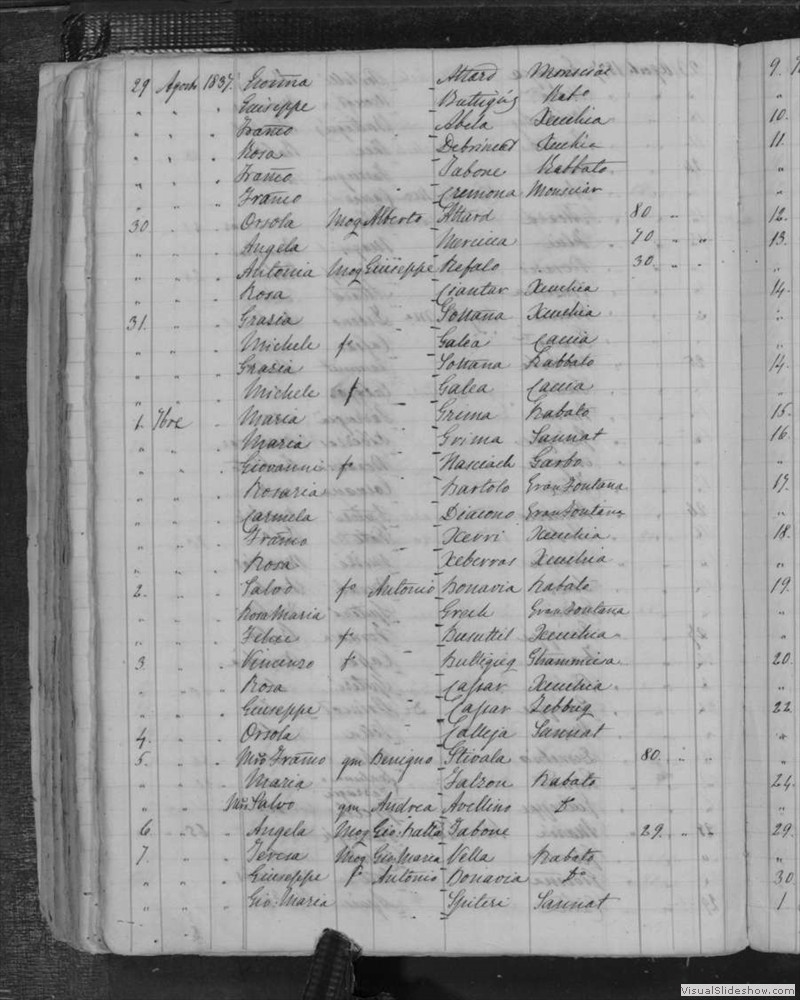 29 Agosto 1837. Giovnna Attard Monsciar 9.
" " . Giuseppe Buttigieg Rabo "
" " . Franco Abela Xeuchia 10.
" " . Rosa Debrincat Xeuchia 11.
" " . Franco Tabone Rabbato "
" " . Franco Cremona Monsciar "
30. " . Orsola Mog Alberto Attard 80 " . 12.
" " . Angela Mercieca 70 " " 13.
" " . Antonia Mog Giuseppe Refalo 30 " . "
" " . Rosa Ciantar Xeuchia 14.
31. " . Grazia Sottana Xeuchia "
" " . Michele fo Galea Caccia "
" " . Grazia Sottana Rabbato 14.
" " . Michele f Galea Caccia "
1. 7bre . Maria Grima Rabato 15.
" " . Maria Grima Sannat 16.
" " . Giovanni fo Garbo "
" " . Rosaria Bartolo Gran Fontana 17.
" " . Carmela Diacono Gran Fontana "
" " . Franco Xerri Xeuchia 18.
" " . Rosa Xeberras Xeuchia "
2. " . Salvo fo Antonio Bonavia Rabato 19.
" " . Rosa Maria Grech Gran Fontana "
" " . Felice fo Busuttil Xeuchia "
3. " . Vincenzo f Buttigieg Ghammiera 20.
" " . Rosa Caspar Xeuchia "
" " . Giuseppe Caspar Zebbug 22.
4. " . Orsola Calleja Sannat "
5. " . Mro Franco qm Benigno Stivala 80 " . "
" " . Maria Falzon Rabato 24.
" " Mro Salvo qm Andrea Avellino Do "
6. " . Angela Mog Gio: Batta Tabone 29. " . 29.
7. " . Teresa Mog Gio Maria Vella Rabato "
" " . Giuseppe fo Antonio Bonavia Do 30
" " . Gio: Maria Spiteri Sannat 1
VisualSlideshow.com